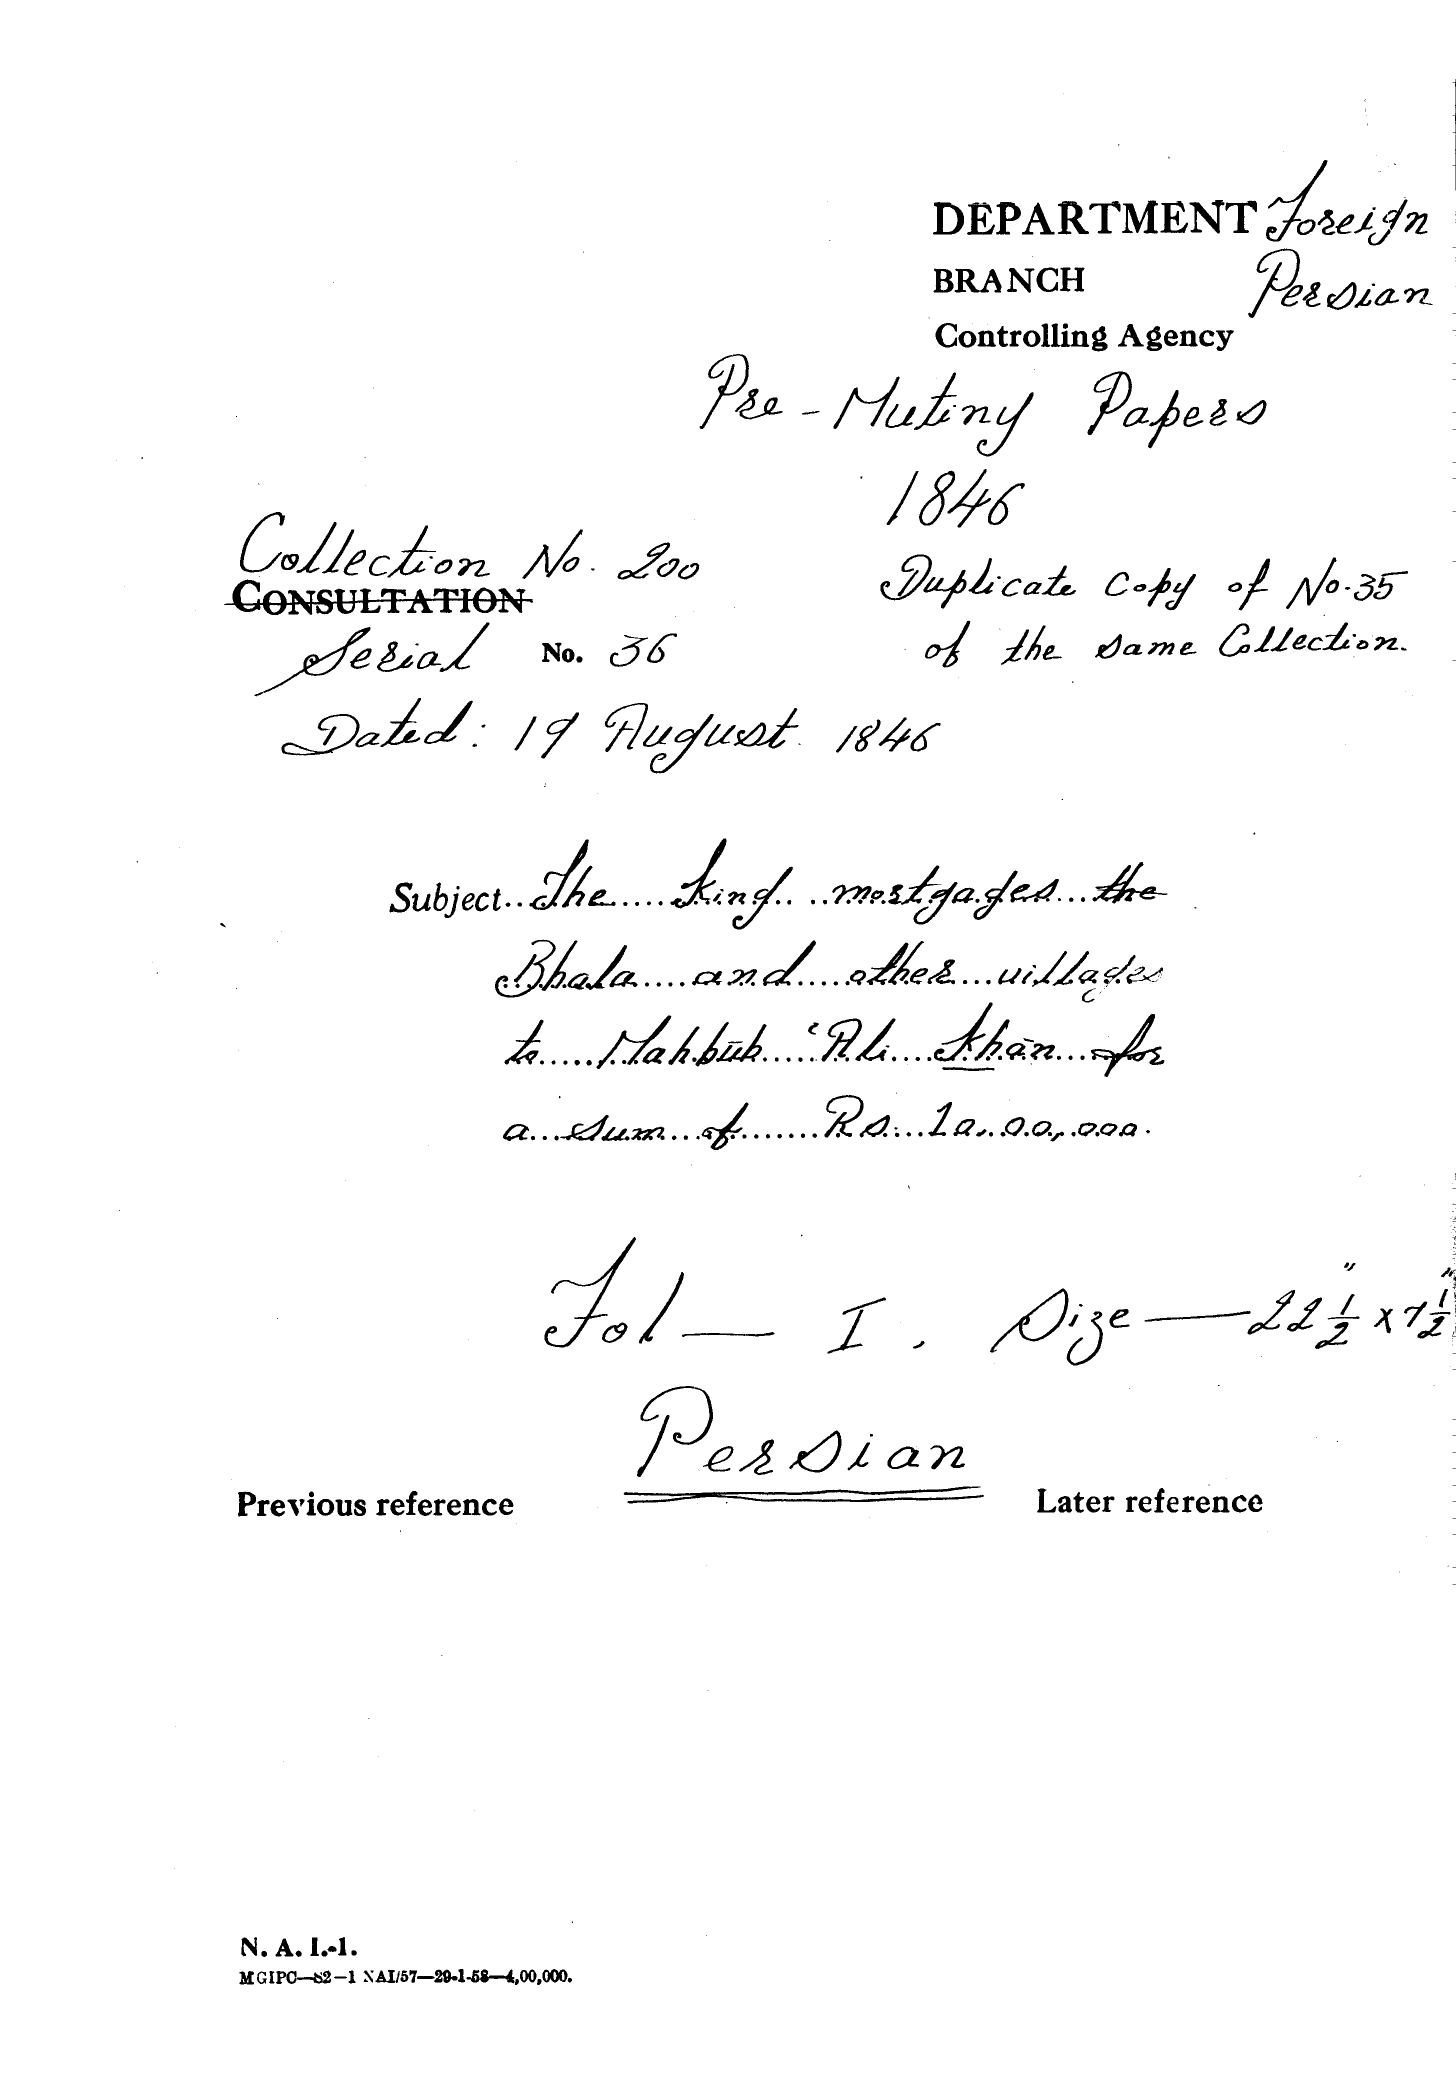 DEPARTMENT Foreign
BRANCH Persian
Controlling Agency
Pre-Mutiny Papers
1846
Collection No. 200
CONSULTATION
Serial No. 36
Duplicate Copy of No. 35
of the same Collection.
Dated: 19 August 1846
Subject.. The.....King....mortgages...the
Bhala....and.....other...villages
to.....Mahbūb.....‘Ali....Khān...for
a...sum...of.......Rs...10,00,000.
Fol — I. Size — 22 1/2" x 7 1/2"
Persian
Previous reference Later reference
N. A. I.-1.
MGIPC—82—1 NAI/57—29-1-58—4,00,000.